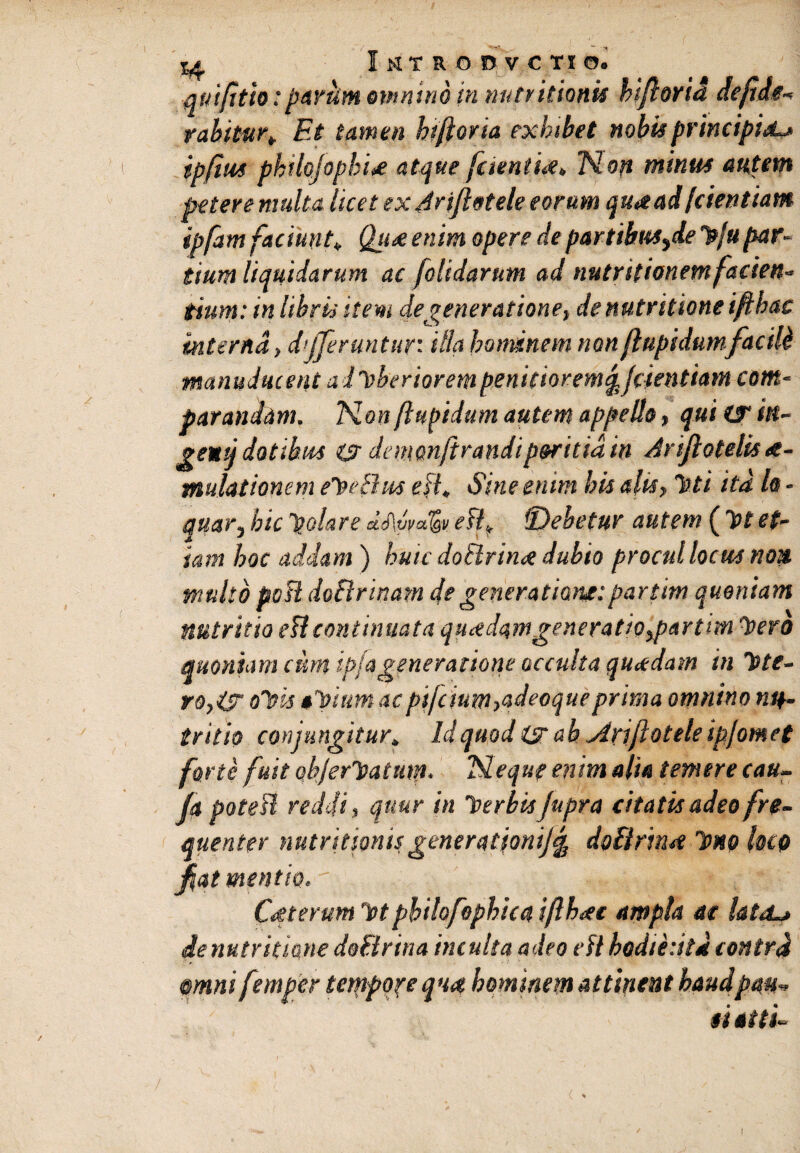 14 INTRODVCTIO.
quiſitio: parùm omninò in nutritionis hiſtoriâ deſide-
rabitur. Et tamen hiſtoria exhibet nobis principia
ipſius philoſophiæ atque ſcientiæ. Non minus autem
petere multa licet ex Ariſtotele eorum quæ ad ſcientiam
ipſam faciunt. Quæ enim opere de partibus, de vſu par-
tium liquidarum ac ſolidarum ad nutritionem facien-
tium: in libris item de generatione, de nutritione iſthac
internâ, diſſeruntur: illa hominem non ſtupidum facilè
manuducent ad vberiorem penitioremq́; ſcientiam com-
parandam. Non ſtupidum autem appello, qui & in-
genij dotibus & demonſtrandi peritiâ in Ariſtotelis æ-
mulationem evectus eſt. Sine enim his alis, vti itâ lo-
quar, hic volare ἀδύνατον eſt. Debetur autem (vt et-
iam hoc addam) huic doctrinæ dubio procul locus non
multò poſt doctrinam de generatione: partim quoniam
nutritio eſt continuata quædam generatio, partim verò
quoniam cùm ipſa generatione occulta quædam in vte-
ro, & ovis avium ac piſcium, adeoque prima omnino nu-
tritio conjungitur. Id quod & ab Ariſtotele ipſomet
fortè fuit obſervatum. Neque enim alia temere cau-
ſa poteſt reddi, quur in verbis ſupra citatis adeo fre-
quenter nutritionis generationiſq́; doctrinæ vno loco
fiat mentio.
Cæterum vt philoſophica iſthæc ampla ac lata
de nutritione doctrina inculta adeo eſt hodie: itâ contrà
omni ſemper tempore quæ hominem attinent haud pau-
ci atti-